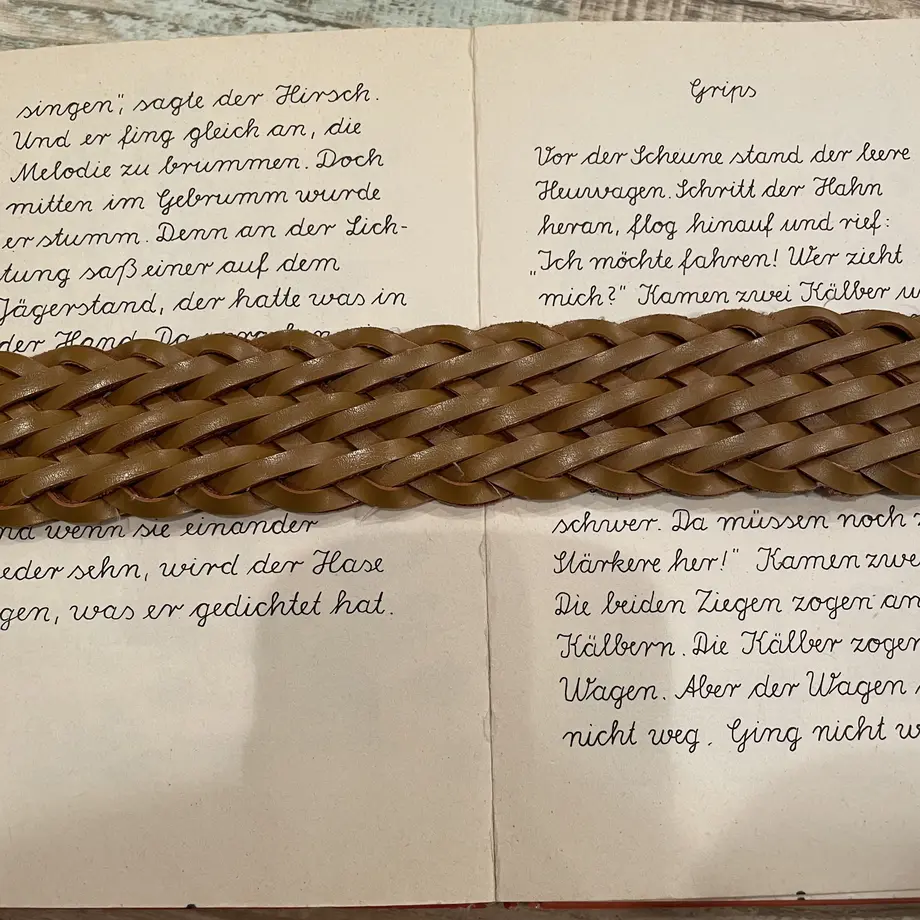 singen", sagte der Hirsch.
Und er fing gleich an, die
Melodie zu brummen. Doch
mitten im Gebrumm wurde
er stumm. Denn an der Lich-
tung saß einer auf dem
Jägerstand, der hatte was in
der Hand. Da
wenn sie einander
sehn, wird der Hase
was er gedichtet hat.
Grips
Vor der Scheune stand der leere
Heuwagen. Schritt der Hahn
heran, flog hinauf und rief:
"Ich möchte fahren! Wer zieht
mich?" Kamen zwei Kälber
schwer. Da müssen noch
Stärkere her!" Kamen
Die beiden Ziegen zogen
Kälbern. Die Kälber
Wagen. Aber der Wagen
nicht weg. Ging nicht